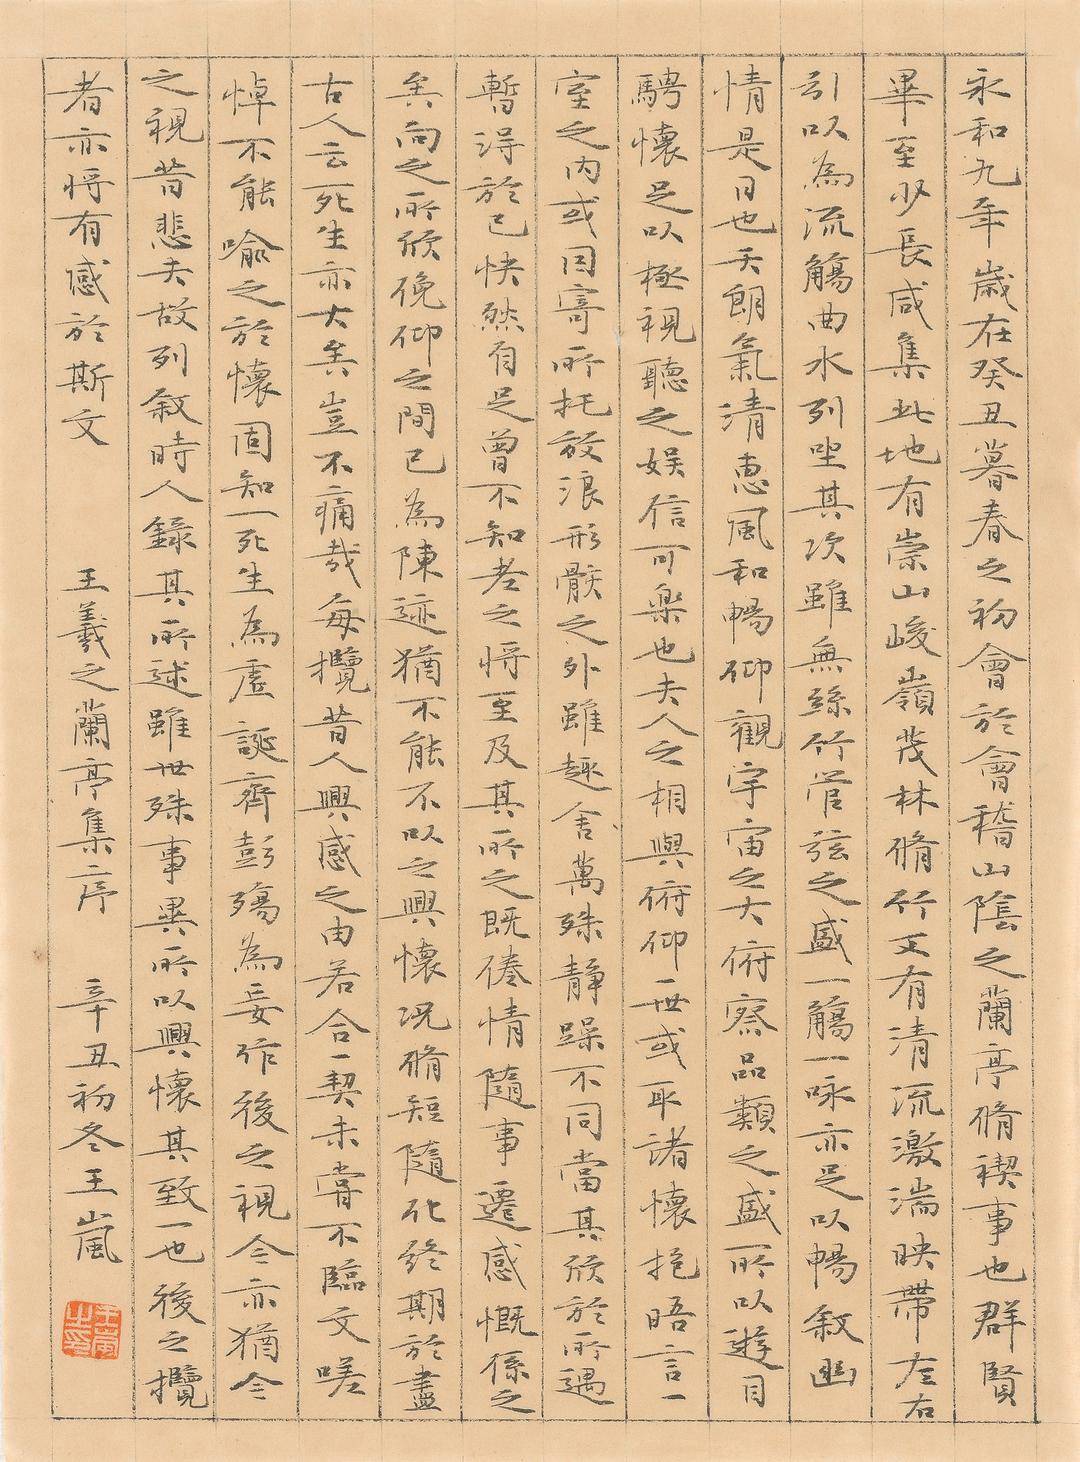 永和九年歲在癸丑暮春之初會於會稽山陰之蘭亭脩禊事也群賢
畢至少長咸集此地有崇山峻嶺茂林脩竹又有清流激湍映帶左右
引以為流觴曲水列坐其次雖無絲竹管弦之盛一觴一咏亦足以暢敘幽
情是日也天朗氣清惠風和暢仰觀宇宙之大俯察品類之盛所以遊目
騁懷足以極視聽之娛信可樂也夫人之相與俯仰一世或取諸懷抱晤言一
室之內或因寄所托放浪形骸之外雖趣舍萬殊靜躁不同當其欣於所遇
暫得於己快然自足曾不知老之將至及其所之既倦情隨事遷感慨係之
矣向之所欣俛仰之間已為陳迹猶不能不以之興懷況脩短隨化終期於盡
古人云死生亦大矣豈不痛哉每攬昔人興感之由若合一契未嘗不臨文嗟
悼不能喻之於懷固知一死生為虛誕齊彭殤為妄作後之視今亦猶今
之視昔悲夫故列敘時人錄其所述雖世殊事異所以興懷其致一也後之攬
者亦將有感於斯文 王羲之蘭亭集序 辛丑初冬王嵐
王嵐之印